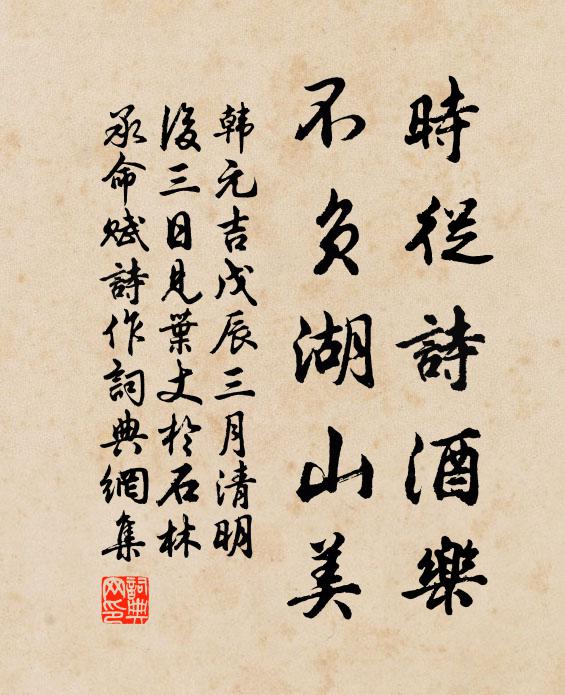 時從詩酒樂
不負湖山美
韩元吉戊辰三月清明
後三日見葉丈於石林
承命賦詩作詞典網集
詞典
网印